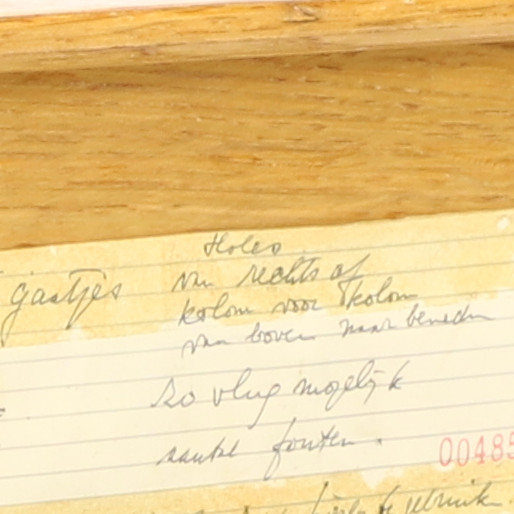 Holes
gaatjes van rechts af
kolom voor kolom
van boven naar beneden
zo vlug mogelijk
aantal fouten.
00485
gebruik.